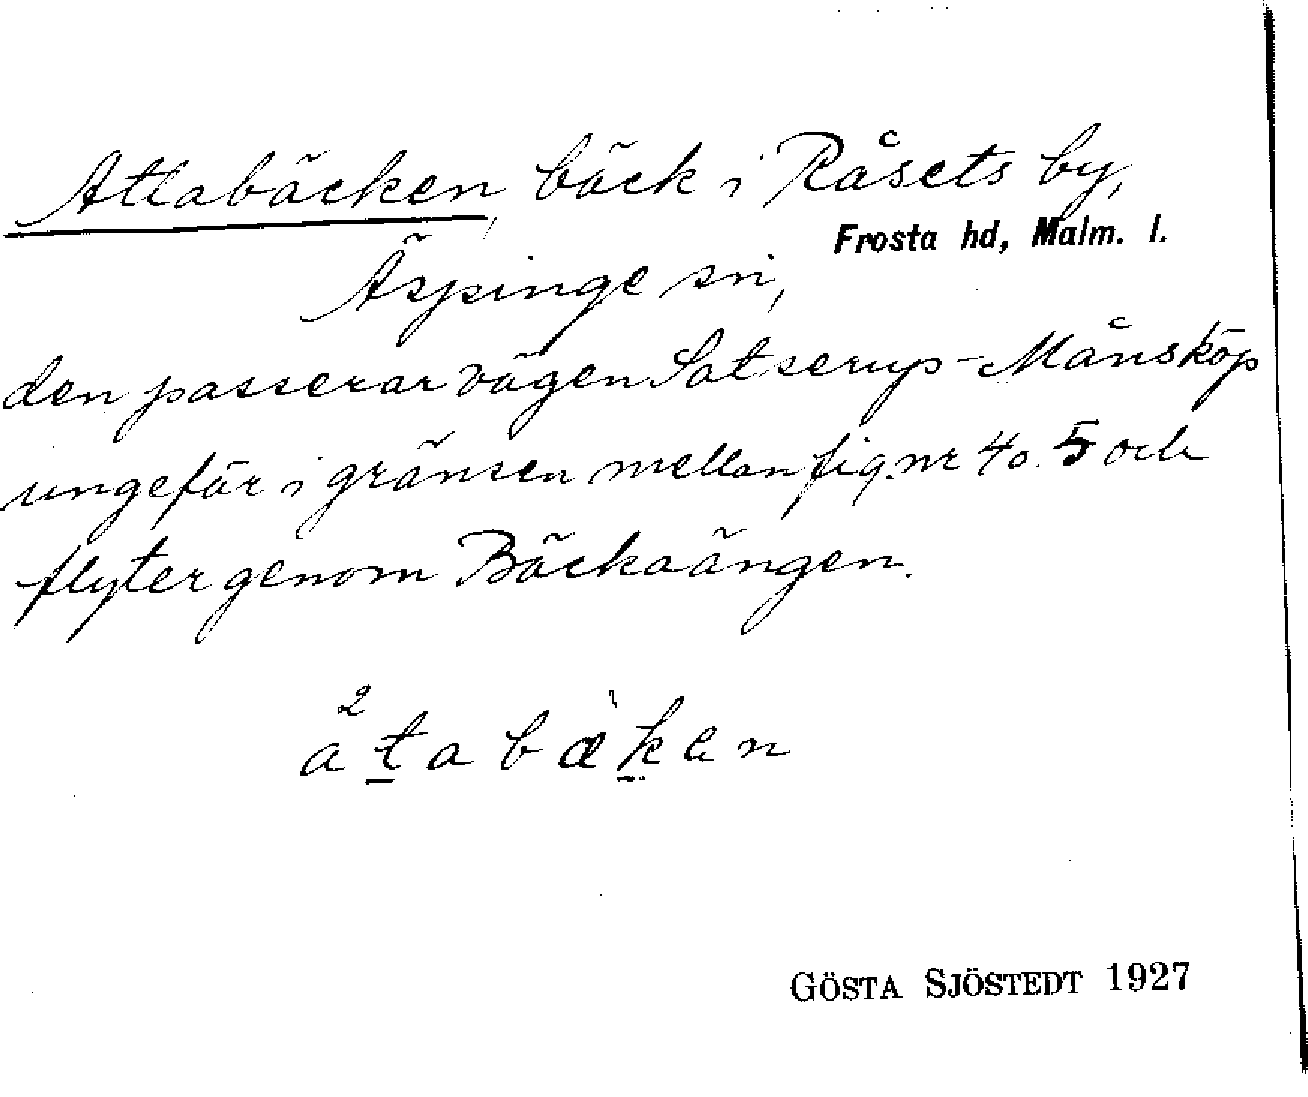 Attabäcken, bäck i Råsets by,
Frosta hd, Malm. l.
Äspinge sn,
den passerar vägen Satserup-Månsköp
ungefär i gränsen mellan fig. nr 4 o. 5 och
flyter genom Bäckaängen.
atabæken
GÖSTA SJÖSTEDT 1927